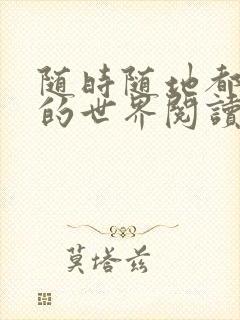 随時随地都
的世界閱讀
莫塔兹